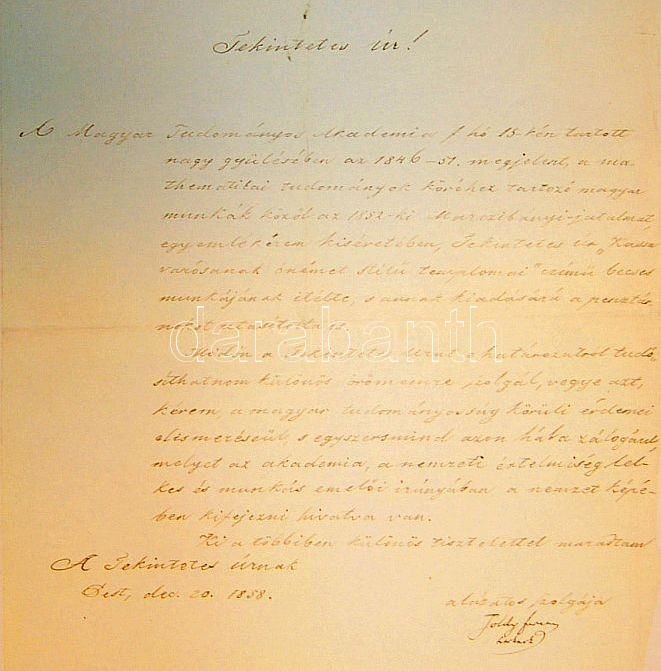 Tekintetes Úr!
A Magyar Tudományos Akademia f. hó 15-kén tartott
nagy gyülésében az 1846–51. megjelent, a ma-
thematikai tudományok köréhez tartozó magyar
munkák közől az 1852-ki Marczibányi-jutalmat,
egy emlékérem kiséretében, Tekintetes úr „Kassa
városának ónémet stílű templomai" czímű becses
munkájának itélte, s annak kiadására a pénztár-
nokot utasította is.
darabanth
Midőn a Tekintetes Urat e határozatról tudó-
síthatnom különös örömemre szolgál, vegye azt,
kérem, a magyar tudományosság körüli érdemei
elismeréseül, s egyszersmind azon hála zálogául
melyet az akademia, a nemzeti értelmiség lel-
kes és munkás emelői irányában a nemzet képé-
ben kifejezni hivatva van.
Ki a többiben különös tisztelettel maradtam
A Tekintetes Úrnak
Pest, dec. 20. 1858.
alázatos szolgája
Toldy Ferenc